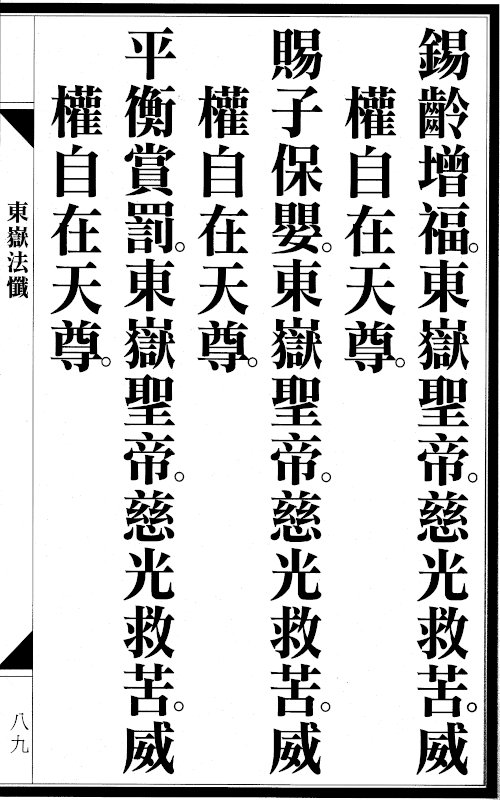 錫齡增福。東嶽聖帝。慈光救苦。威
權自在天尊。
賜子保嬰。東嶽聖帝。慈光救苦。威
權自在天尊。
平衡賞罰。東嶽聖帝。慈光救苦。威
權自在天尊。
東嶽法懺
八九